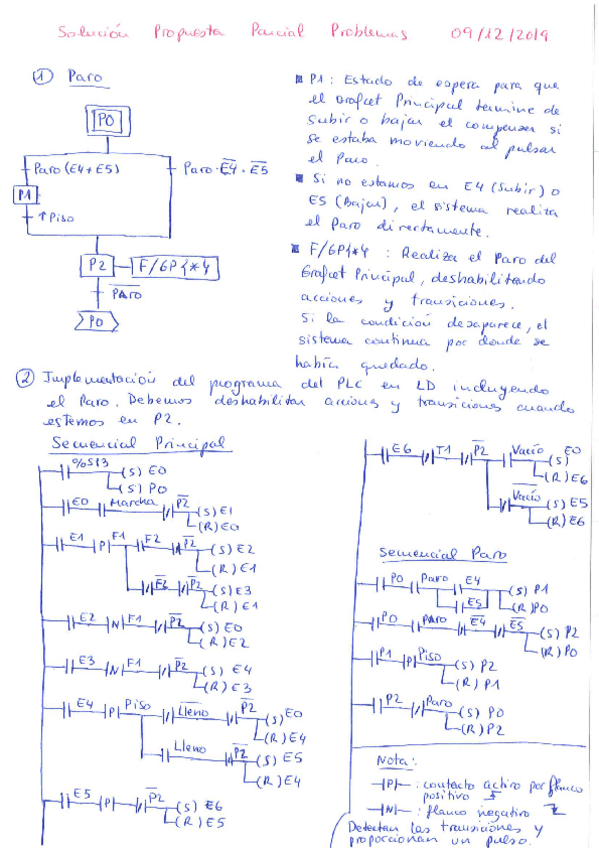 Solución Propuesta Parcial Problemas 09/12/2019
① Paro
P0
Paro (E4+E5)
Paro·E̅4̅·E̅5̅
P1
↑Piso
P2
F/GP{*}
P̅a̅r̅o̅
P0
P1: Estado de espera para que
el Grafcet Principal termine de
subir o bajar el compensar si
se estaba moviendo al pulsar
el Paro.
Si no estamos en E4 (Subir) o
E5 (Bajar), el sistema realiza
el Paro directamente.
F/GP{*}: Realiza el Paro del
Grafcet Principal, deshabilitando
acciones y transiciones.
Si la condición desaparece, el
sistema continua por donde se
había quedado.
② Implementación del programa del PLC en LD incluyendo
el Paro. Debemos deshabilitar acciones y transiciones cuando
estemos en P2.
Secuencial Principal
%S13 (S) E0
(S) P0
E0 Marcha P̅2̅ (S) E1
(R) E0
E1 P F1 F2 P̅2̅ (S) E2
(R) E1
F̅2̅ P̅2̅ (S) E3
(R) E1
E2 N F1 P̅2̅ (S) E0
(R) E2
E3 N F1 P̅2̅ (S) E4
(R) E3
E4 P Piso L̅l̅e̅n̅o̅ P̅2̅ (S) E0
(R) E4
Lleno P̅2̅ (S) E5
(R) E4
E5 P P̅2̅ (S) E6
(R) E5
E6 T1 P̅2̅ Vacío (S) E0
(R) E6
V̅a̅c̅í̅o̅ (S) E5
(R) E6
Secuencial Paro
P0 Paro E4 (S) P1
E5 (R) P0
P0 Paro E̅4̅ E̅5̅ (S) P2
(R) P0
P1 P Piso (S) P2
(R) P1
P2 P̅a̅r̅o̅ (S) P0
(R) P2
Nota:
P : contacto activo por flanco
positivo
N : flanco negativo
Detectan las transiciones y
proporcionan un pulso.